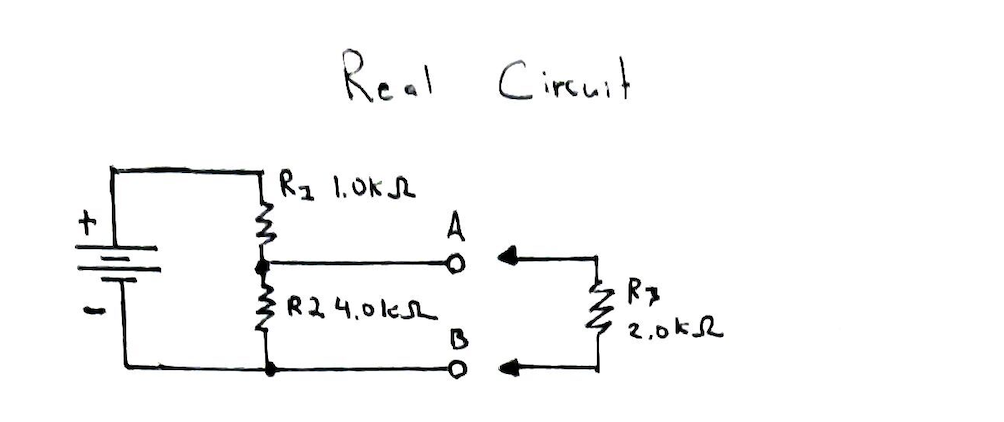 Real Circuit
R1 1.0kΩ
+
A
R2 4.0kΩ
R3
2.0kΩ
-
B